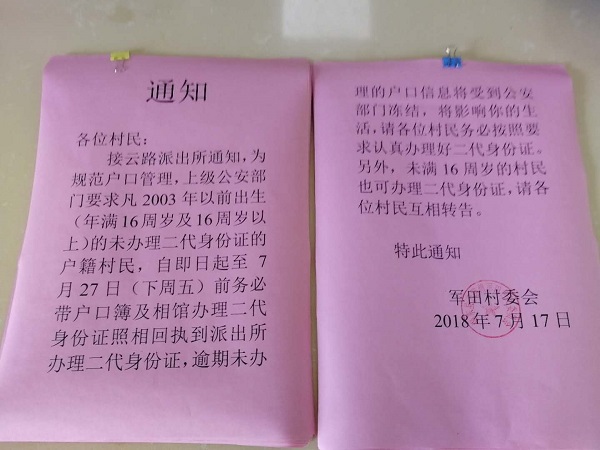 通知
各位村民：
接云路派出所通知，为
规范户口管理，上级公安部
门要求凡 2003 年以前出生
（年满 16 周岁及 16 周岁以
上）的未办理二代身份证的
户籍村民，自即日起至 7
月 27 日（下周五）前务必
带户口簿及相馆办理二代
身份证照相回执到派出所
办理二代身份证，逾期未办
理的户口信息将受到公安
部门冻结，将影响你的生
活，请各位村民务必按照要
求认真办理好二代身份证。
另外，未满 16 周岁的村民
也可办理二代身份证，请各
位村民互相转告。
特此通知
军田村委会
2018 年 7 月 17 日